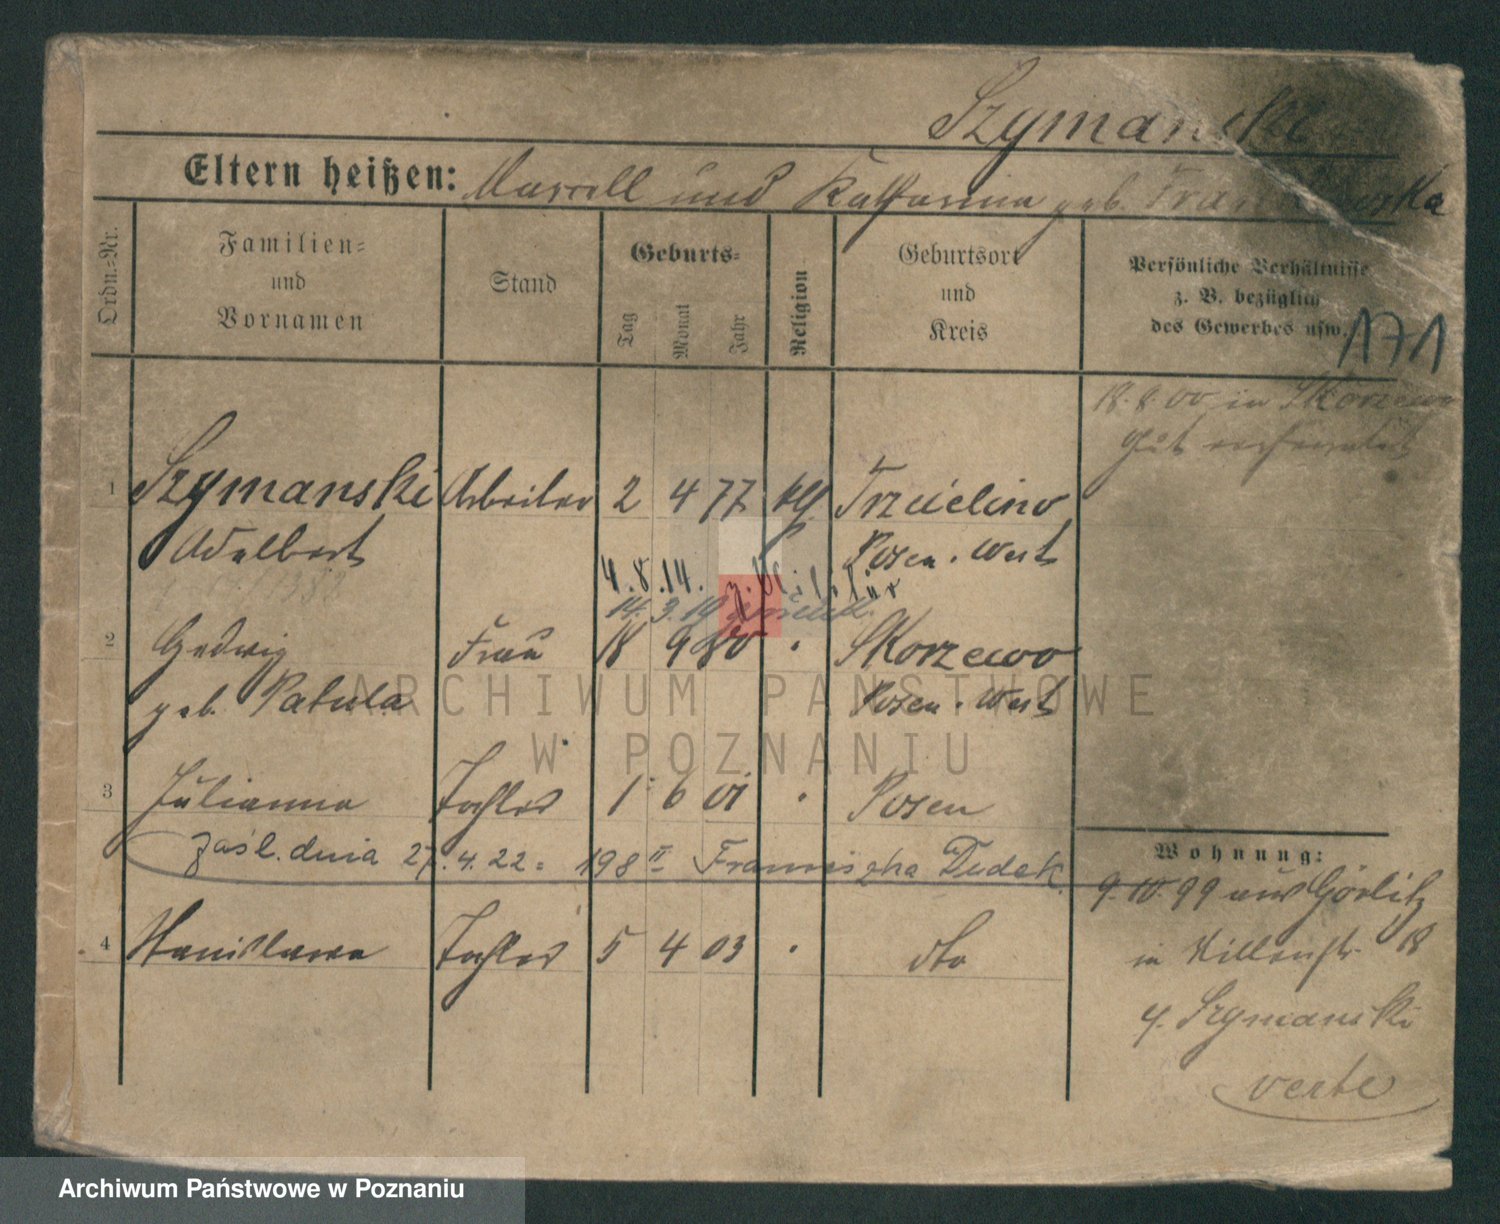 Szymanski
Eltern heißen: Marcell und Katharina geb. Frankowska
Ordn.=Nr.
Familien=
und
Vornamen
Stand
Geburts=
Tag
Monat
Jahr
Religion
Geburtsort
und
Kreis
Persönliche Verhältnisse
z. B. bezüglich
des Gewerbes usw.
171
18.8.00 in Skorzewo
1 Szymanski Arbeiter 2 4 77 kth Trzcielino
Adalbert Posen. West
4.8.14. z. Militär
14.3.19 zurück
2 Hedwig Frau 18 9 80 " Skorzewo
geb. Patula Posen. West
3 Julianna Tochter 1 6 01 " Posen
zaśl. dnia 27.4.22 = 198 II Franciszka Dudek
4 Stanislawa Tochter 5 4 03 " dto
Wohnung:
9.10.99 aus Görlitz
in 18
b. Szymanski
verte
ARCHIWUM PAŃSTWOWE
W POZNANIU
Archiwum Państwowe w Poznaniu